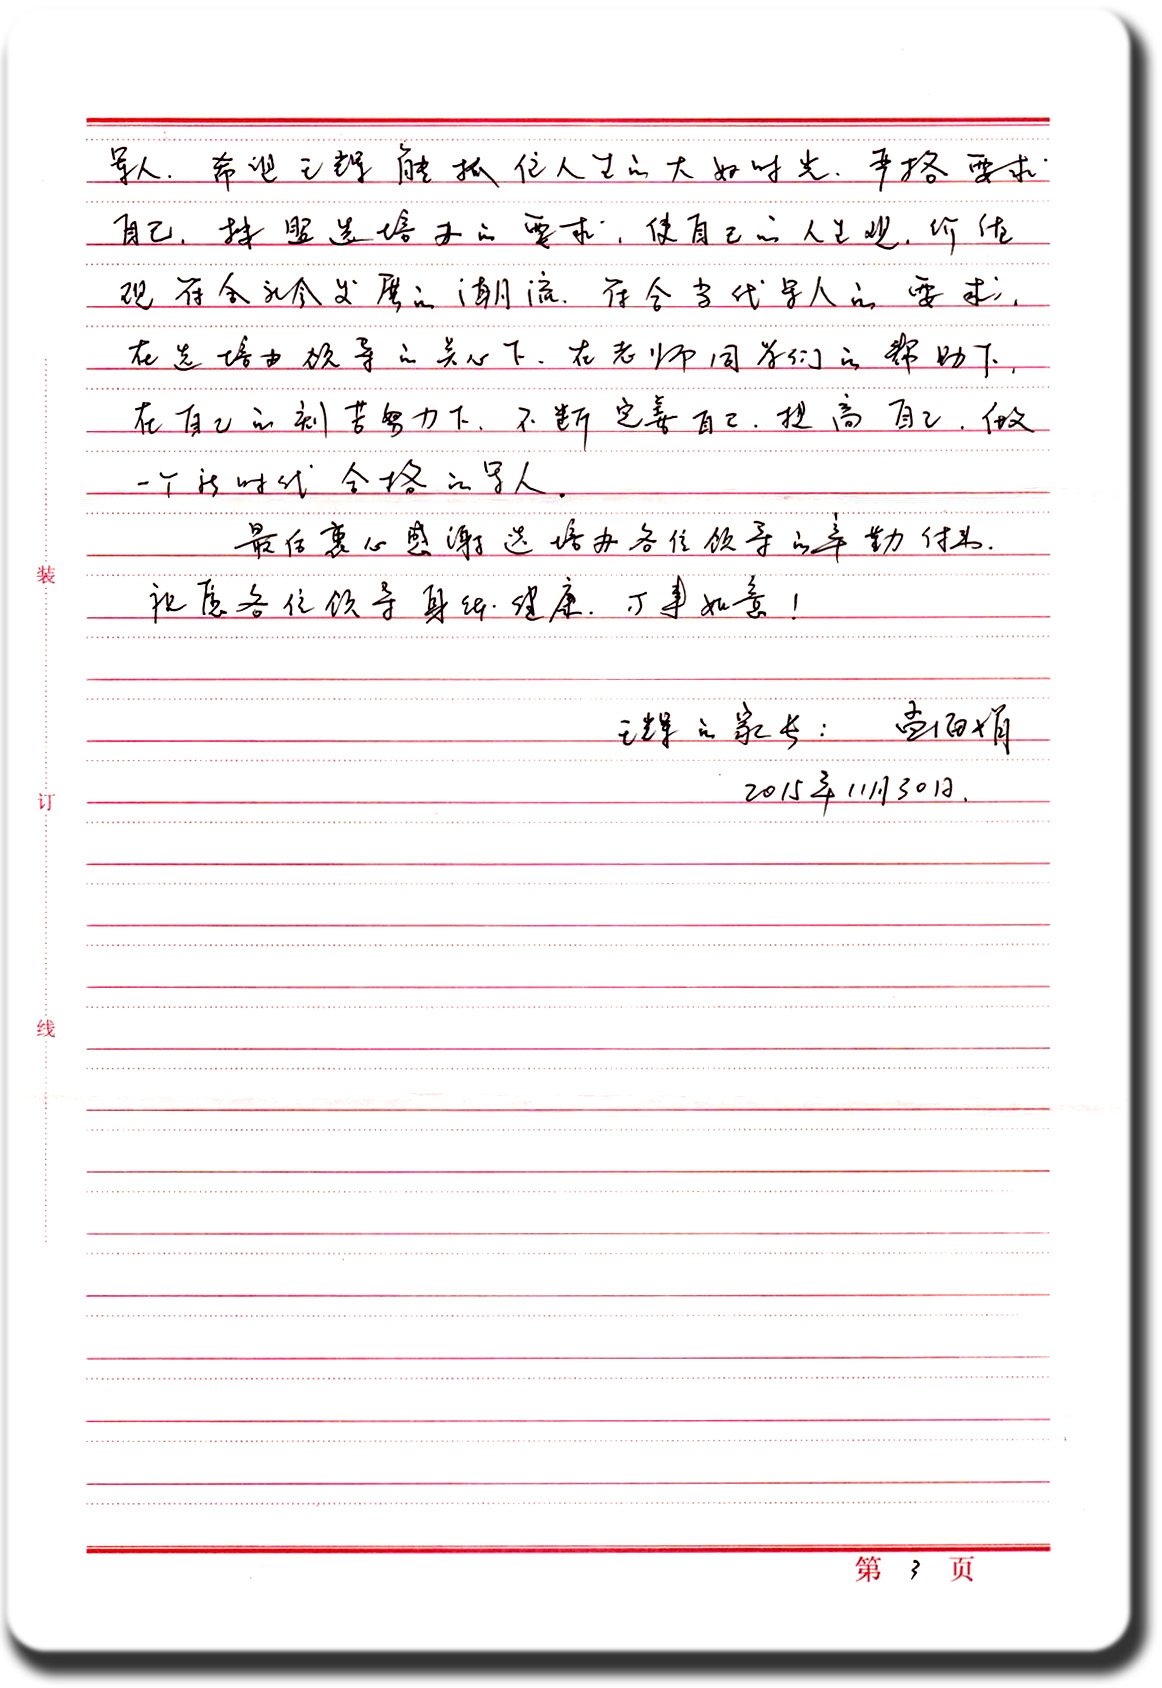 军人。希望王辉能抓住人生的大好时光。严格要求
自己，按照选培办的要求，使自己的人生观，价值
观符合社会发展的潮流，符合当代军人的要求，
在选培办领导的关心下，在老师同学们的帮助下，
在自己的刻苦努力下，不断完善自己，提高自己，做
一个新时代合格的军人。
最后衷心感谢选培办各位领导的辛勤付出，
祝愿各位领导身体健康，万事如意！
王辉的家长：
2015年11月30日.
装
订
线
第 3 页